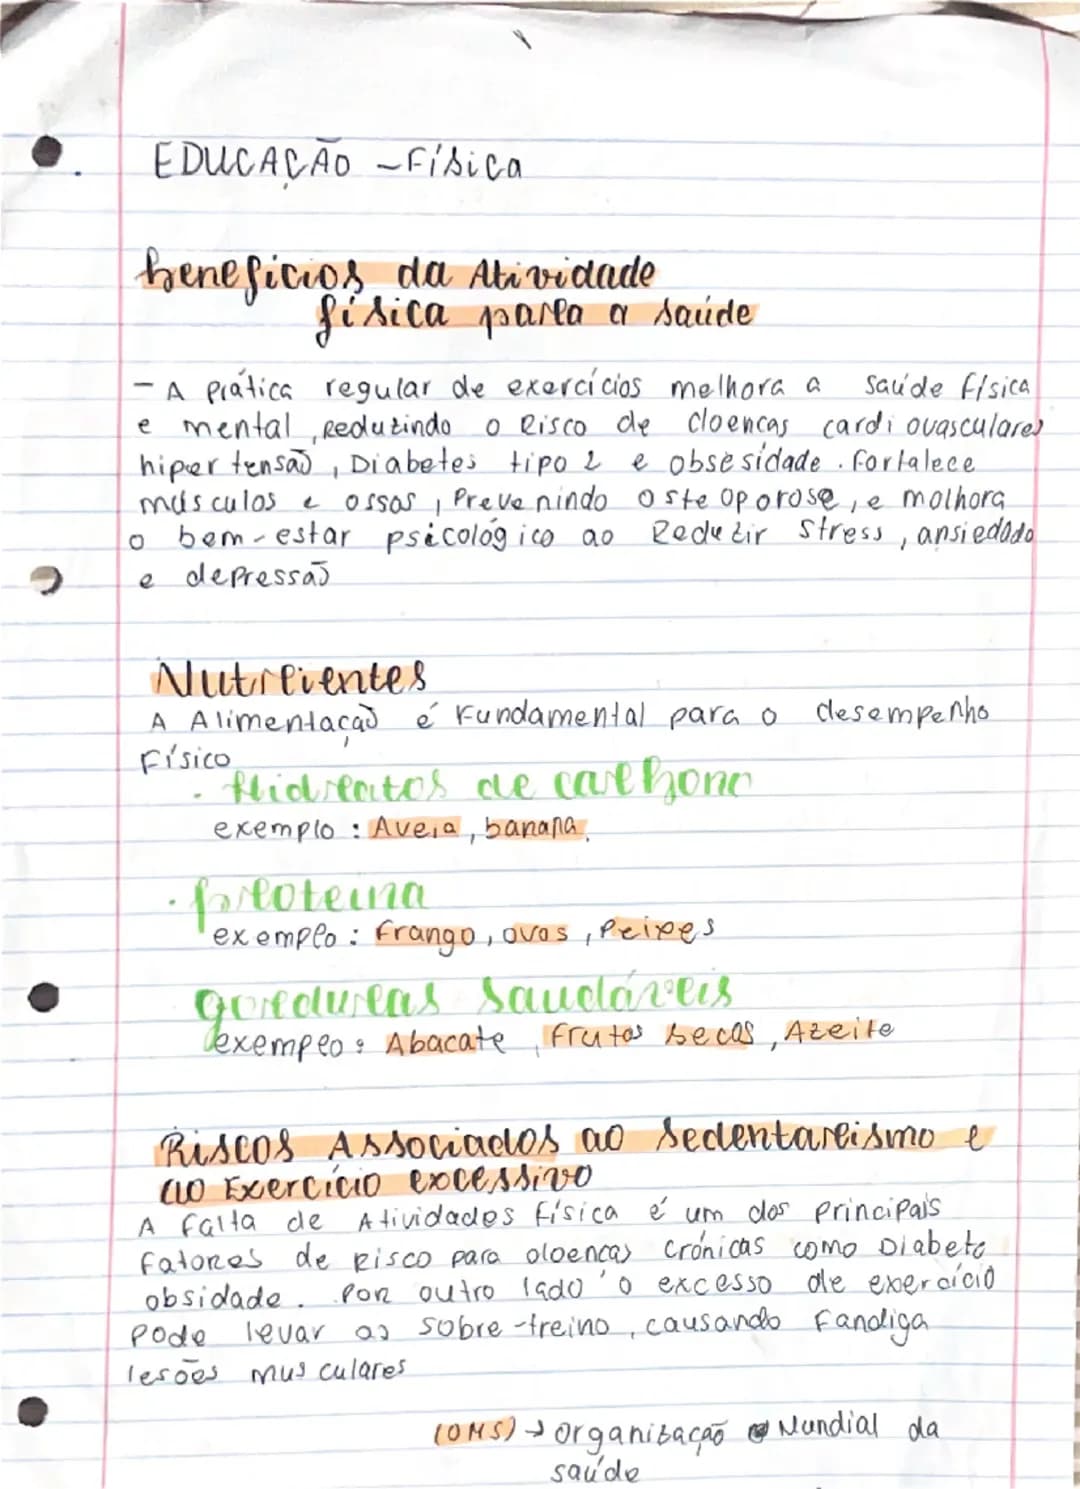 EDUCAÇÃO - Física
benefícios da Atividade
física para a saúde
- A prática regular de exercícios melhora a saúde física
e mental, Reduzindo o Risco de doencas cardiovasculares
hipertensão, Diabetes tipo 2 e obsesidade. fortalece
músculos e ossos, Prevenindo osteoporose, e molhora
o bem-estar psicológico ao Reduzir Stress, ansiedado
e depressão
Nutrientes
A Alimentação é Fundamental para o desempenho
Físico
· Hidratos de carbono
exemplo : Aveia, banana.
· proteina
exemplo : frango, ovos, Peixes
gorduras saudáveis
exemplo : Abacate, Frutos secos, Azeite
Riscos Associados ao Sedentarismo e
ao Exercício excessivo
A falta de Atividades física é um dos principais
fatores de Risco para doencas crónicas como Diabete
obsidade. Por outro lado 'o excesso de exercício
pode levar ao sobre-treino, causando Fandiga
lesões musculares
(OMS) → Organização Mundial da
saúde